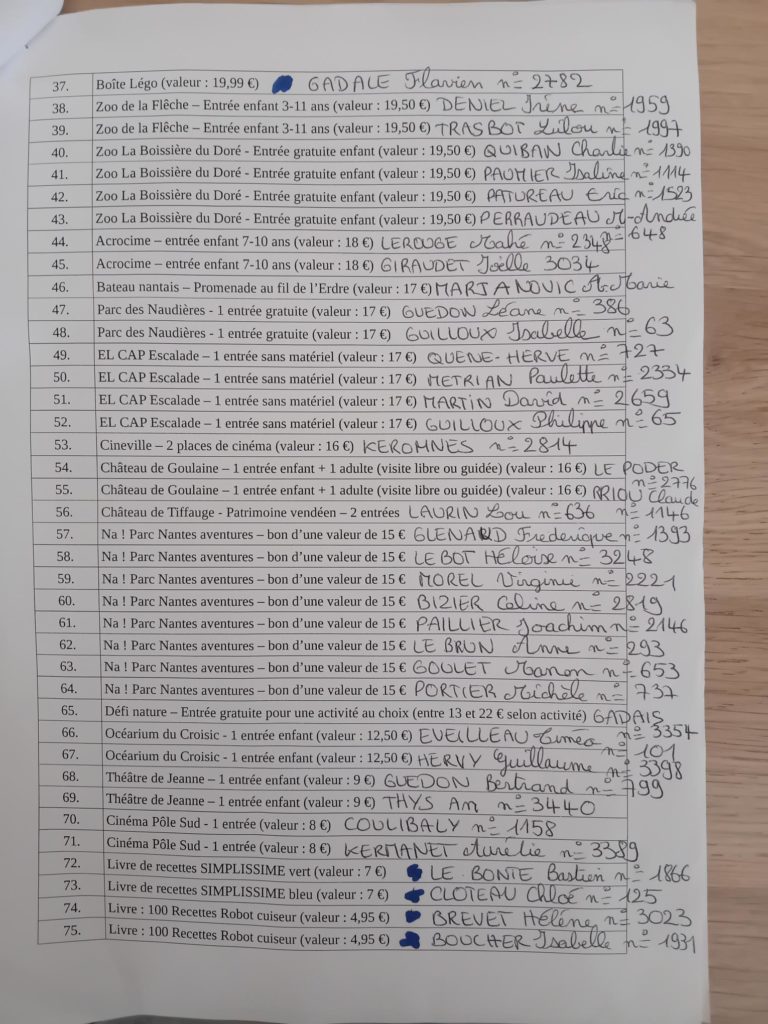 37. Boîte Légo (valeur : 19,99 €) GADALE Flavien n° 2782
38. Zoo de la Flêche – Entrée enfant 3-11 ans (valeur : 19,50 €) DENIEL Irène n° 1959
39. Zoo de la Flêche – Entrée enfant 3-11 ans (valeur : 19,50 €) TRASBOT Lilou n° 1997
40. Zoo La Boissière du Doré - Entrée gratuite enfant (valeur : 19,50 €) QUIBAN Charlie n° 1390
41. Zoo La Boissière du Doré - Entrée gratuite enfant (valeur : 19,50 €) PAUMIER Isaline n° 1114
42. Zoo La Boissière du Doré - Entrée gratuite enfant (valeur : 19,50 €) PATUREAU Eric n° 1523
43. Zoo La Boissière du Doré - Entrée gratuite enfant (valeur : 19,50 €) PERRAUDEAU M-Andrée
n° 648
44. Acrocime – entrée enfant 7-10 ans (valeur : 18 €) LEROUGE Mahé n° 2348
45. Acrocime – entrée enfant 7-10 ans (valeur : 18 €) GIRAUDET Joëlle 3034
46. Bateau nantais – Promenade au fil de l'Erdre (valeur : 17 €) MARJANOVIC A-Marie
47. Parc des Naudières - 1 entrée gratuite (valeur : 17 €) GUEDON Léane n° 386
48. Parc des Naudières - 1 entrée gratuite (valeur : 17 €) GUILLOUX Isabelle n° 63
49. EL CAP Escalade – 1 entrée sans matériel (valeur : 17 €) QUENE-HERVE n° 727
50. EL CAP Escalade – 1 entrée sans matériel (valeur : 17 €) METRIAN Paulette n° 2334
51. EL CAP Escalade – 1 entrée sans matériel (valeur : 17 €) MARTIN David n° 2659
52. EL CAP Escalade – 1 entrée sans matériel (valeur : 17 €) GUILLOUX Philippe n° 65
53. Cineville – 2 places de cinéma (valeur : 16 €) KEROMNES n° 2814
54. Château de Goulaine – 1 entrée enfant + 1 adulte (visite libre ou guidée) (valeur : 16 €) LE PODER
n° 2776
55. Château de Goulaine – 1 entrée enfant + 1 adulte (visite libre ou guidée) (valeur : 16 €) RRIOU Claude
n° 1146
56. Château de Tiffauge - Patrimoine vendéen – 2 entrées LAURIN Lou n° 636
57. Na ! Parc Nantes aventures – bon d'une valeur de 15 € GLENARD Frederique n° 1393
58. Na ! Parc Nantes aventures – bon d'une valeur de 15 € LE BOT Héloïse n° 3248
59. Na ! Parc Nantes aventures – bon d'une valeur de 15 € MOREL Virginie n° 2221
60. Na ! Parc Nantes aventures – bon d'une valeur de 15 € BIZIER Céline n° 2819
61. Na ! Parc Nantes aventures – bon d'une valeur de 15 € PAILLIER Joachim n° 2146
62. Na ! Parc Nantes aventures – bon d'une valeur de 15 € LE BRUN Anne n° 293
63. Na ! Parc Nantes aventures – bon d'une valeur de 15 € GOULET Manon n° 653
64. Na ! Parc Nantes aventures – bon d'une valeur de 15 € PORTIER Michèle n° 737
65. Défi nature – Entrée gratuite pour une activité au choix (entre 13 et 22 € selon activité) GADAIS
n° 3354
66. Océarium du Croisic - 1 entrée enfant (valeur : 12,50 €) EVEILLEAU Timéo
n° 101
67. Océarium du Croisic - 1 entrée enfant (valeur : 12,50 €) HERVY Guillaume n° 3398
68. Théâtre de Jeanne – 1 entrée enfant (valeur : 9 €) GUEDON Bertrand n° 799
69. Théâtre de Jeanne – 1 entrée enfant (valeur : 9 €) THYS An n° 3440
70. Cinéma Pôle Sud - 1 entrée (valeur : 8 €) COULIBALY n° 1158
71. Cinéma Pôle Sud - 1 entrée (valeur : 8 €) KERMANET Aurélie n° 3389
72. Livre de recettes SIMPLISSIME vert (valeur : 7 €) LE BONTE Bastien n° 1866
73. Livre de recettes SIMPLISSIME bleu (valeur : 7 €) CLOTEAU Chloé n° 125
74. Livre : 100 Recettes Robot cuiseur (valeur : 4,95 €) BREVET Hélène n° 3023
75. Livre : 100 Recettes Robot cuiseur (valeur : 4,95 €) BOUCHER Isabelle n° 1931